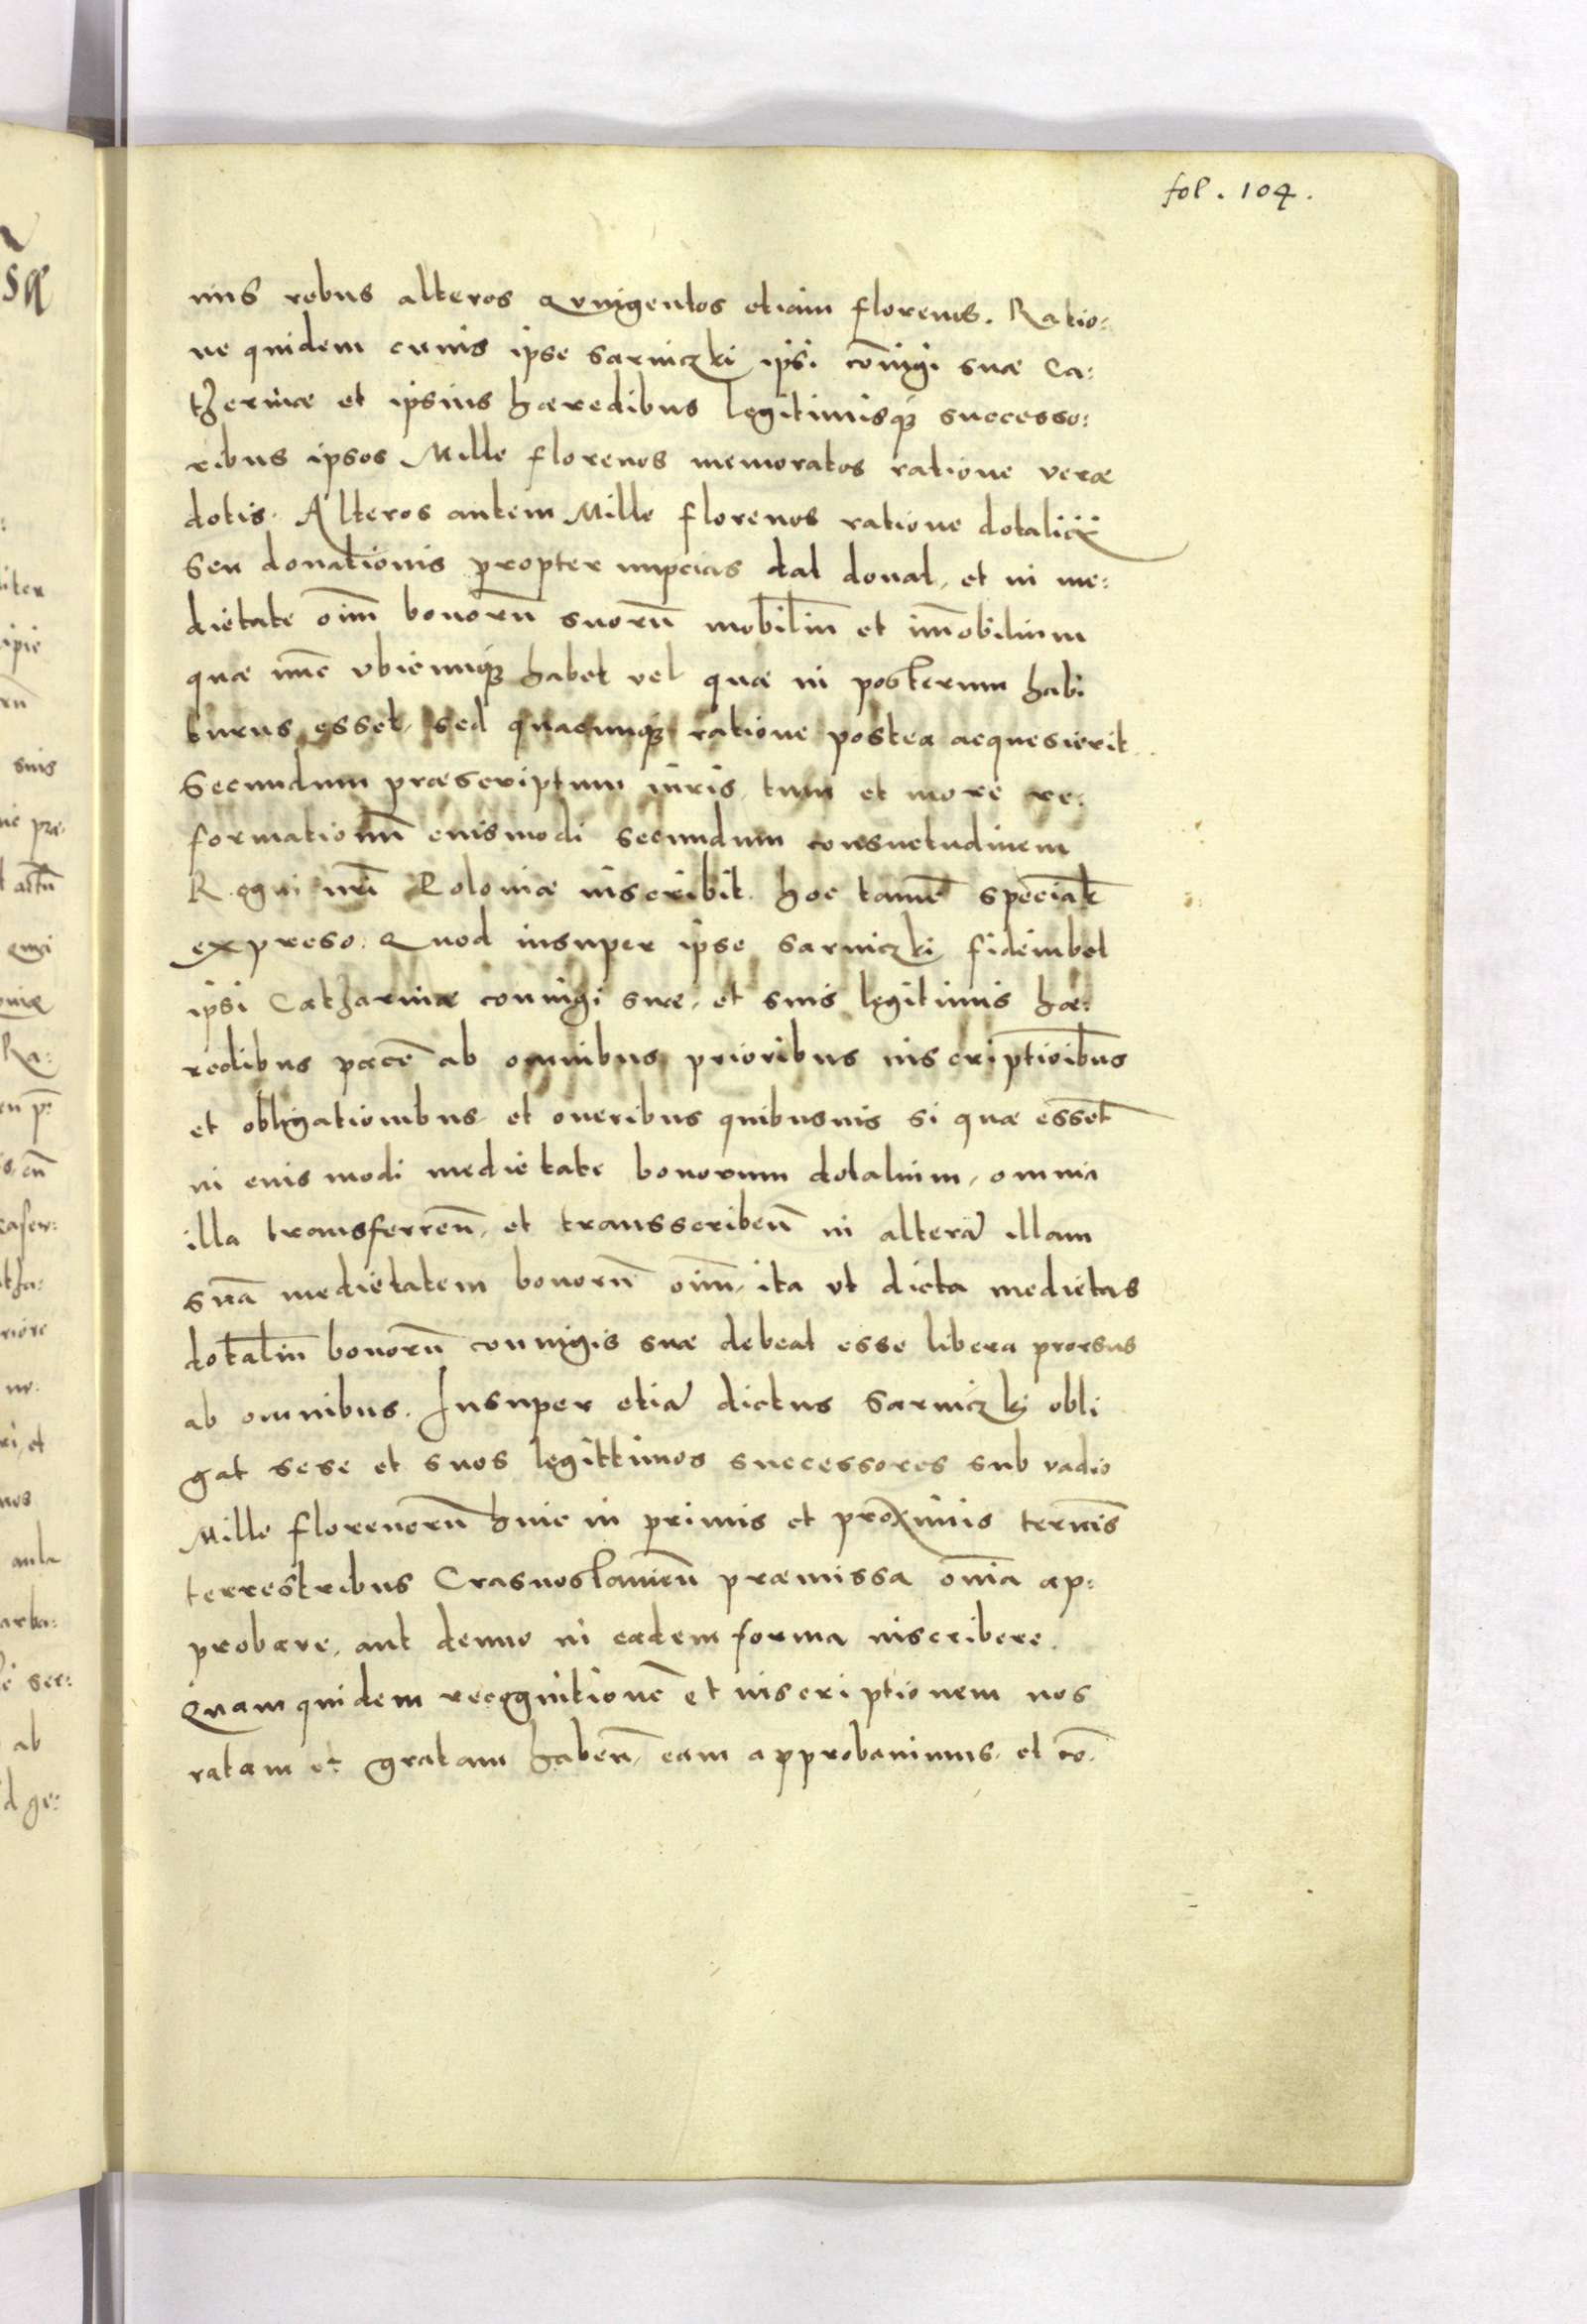 fol. 104.
niis rebus alteros Quingentos etiam florenos. Ratio:
ne quidem cuius ipse Sarniczki ipsi cõiugi suæ Ca:
therinæ et ipsius hæredibus legitimisq3 successo:
ribus ipsos Mille florenos memoratos ratione veræ
dotis. Alteros autem Mille florenos ratione dotalicii
Seu donationis propter nupcias dat donat, et in me:
dietate oim̃ bonorũ suorũ mobiliũ et im̃obilium
quæ nũc vbicunq3 habet vel quæ in posterum habi
turus esset, sed quacunq3 ratione postea acquesierit
Secundum præscriptum iuris, tum et more re:
formationũ euismodi secundum consuetudinem
Regni nr̃i Poloniæ inscribit. hoc tamẽ speciatr̃
expreso. Quod insuper ipse Sarniczki fideiubet
ipsi Catharinæ coniugi suæ, et suis legitimis hæ:
redibus pacẽ ab omnibus prioribus inscriptioñibus
et obligationibus et oneribus quibusuis si quæ essẽt
in euismodi medietate bonorum dotalium, omnia
illa transferreñ, et transscribeñ in alterã illam
suã medietatem bonorũ oim̃, ita vt dicta medietas
dotaliũ bonorũ coniugis suæ debeat esse libera prorsus
ab omnibus. Insuper etiã dictus Sarniczki obli
gat sese et suos legittimos successores sub vadio
Mille florenorũ huic in primis et proximis terminis
terrestribus Crasnostauieñ præmissa om̃ia ap:
probare, aut denuo in eadem forma inscribere.
Quam quidem recognitionẽ et inscriptionem nos
ratam et gratam habeñ, eam approbauimus, et cõ: